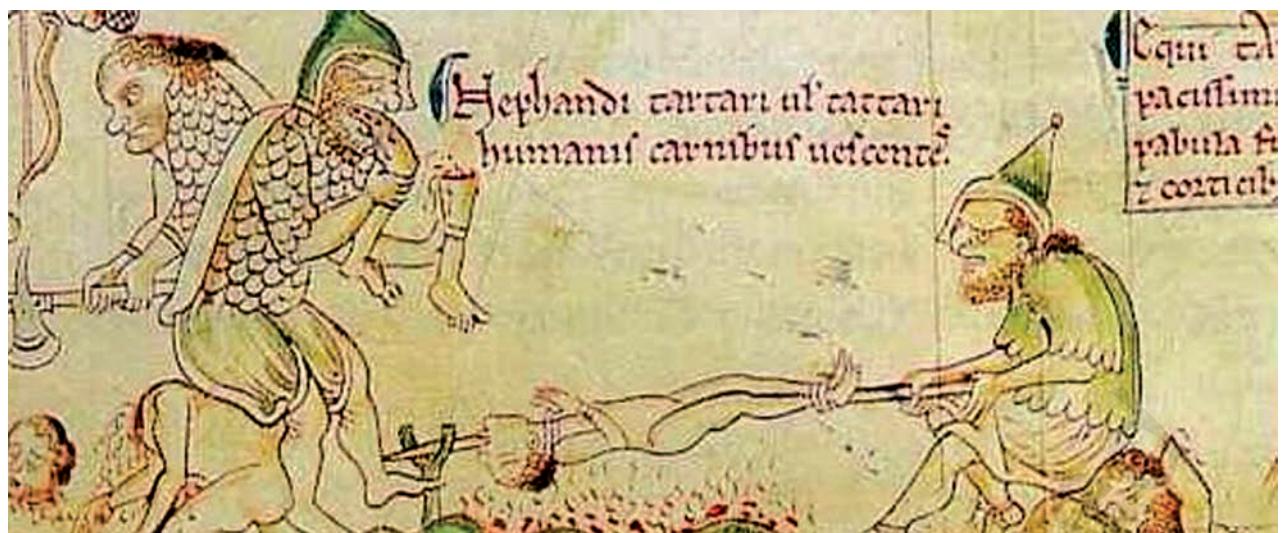 Nephandi tartari ul' tattari
humanis carnibus uescentes
Equi ta
pacissimi
pabula f
⁊ corticib